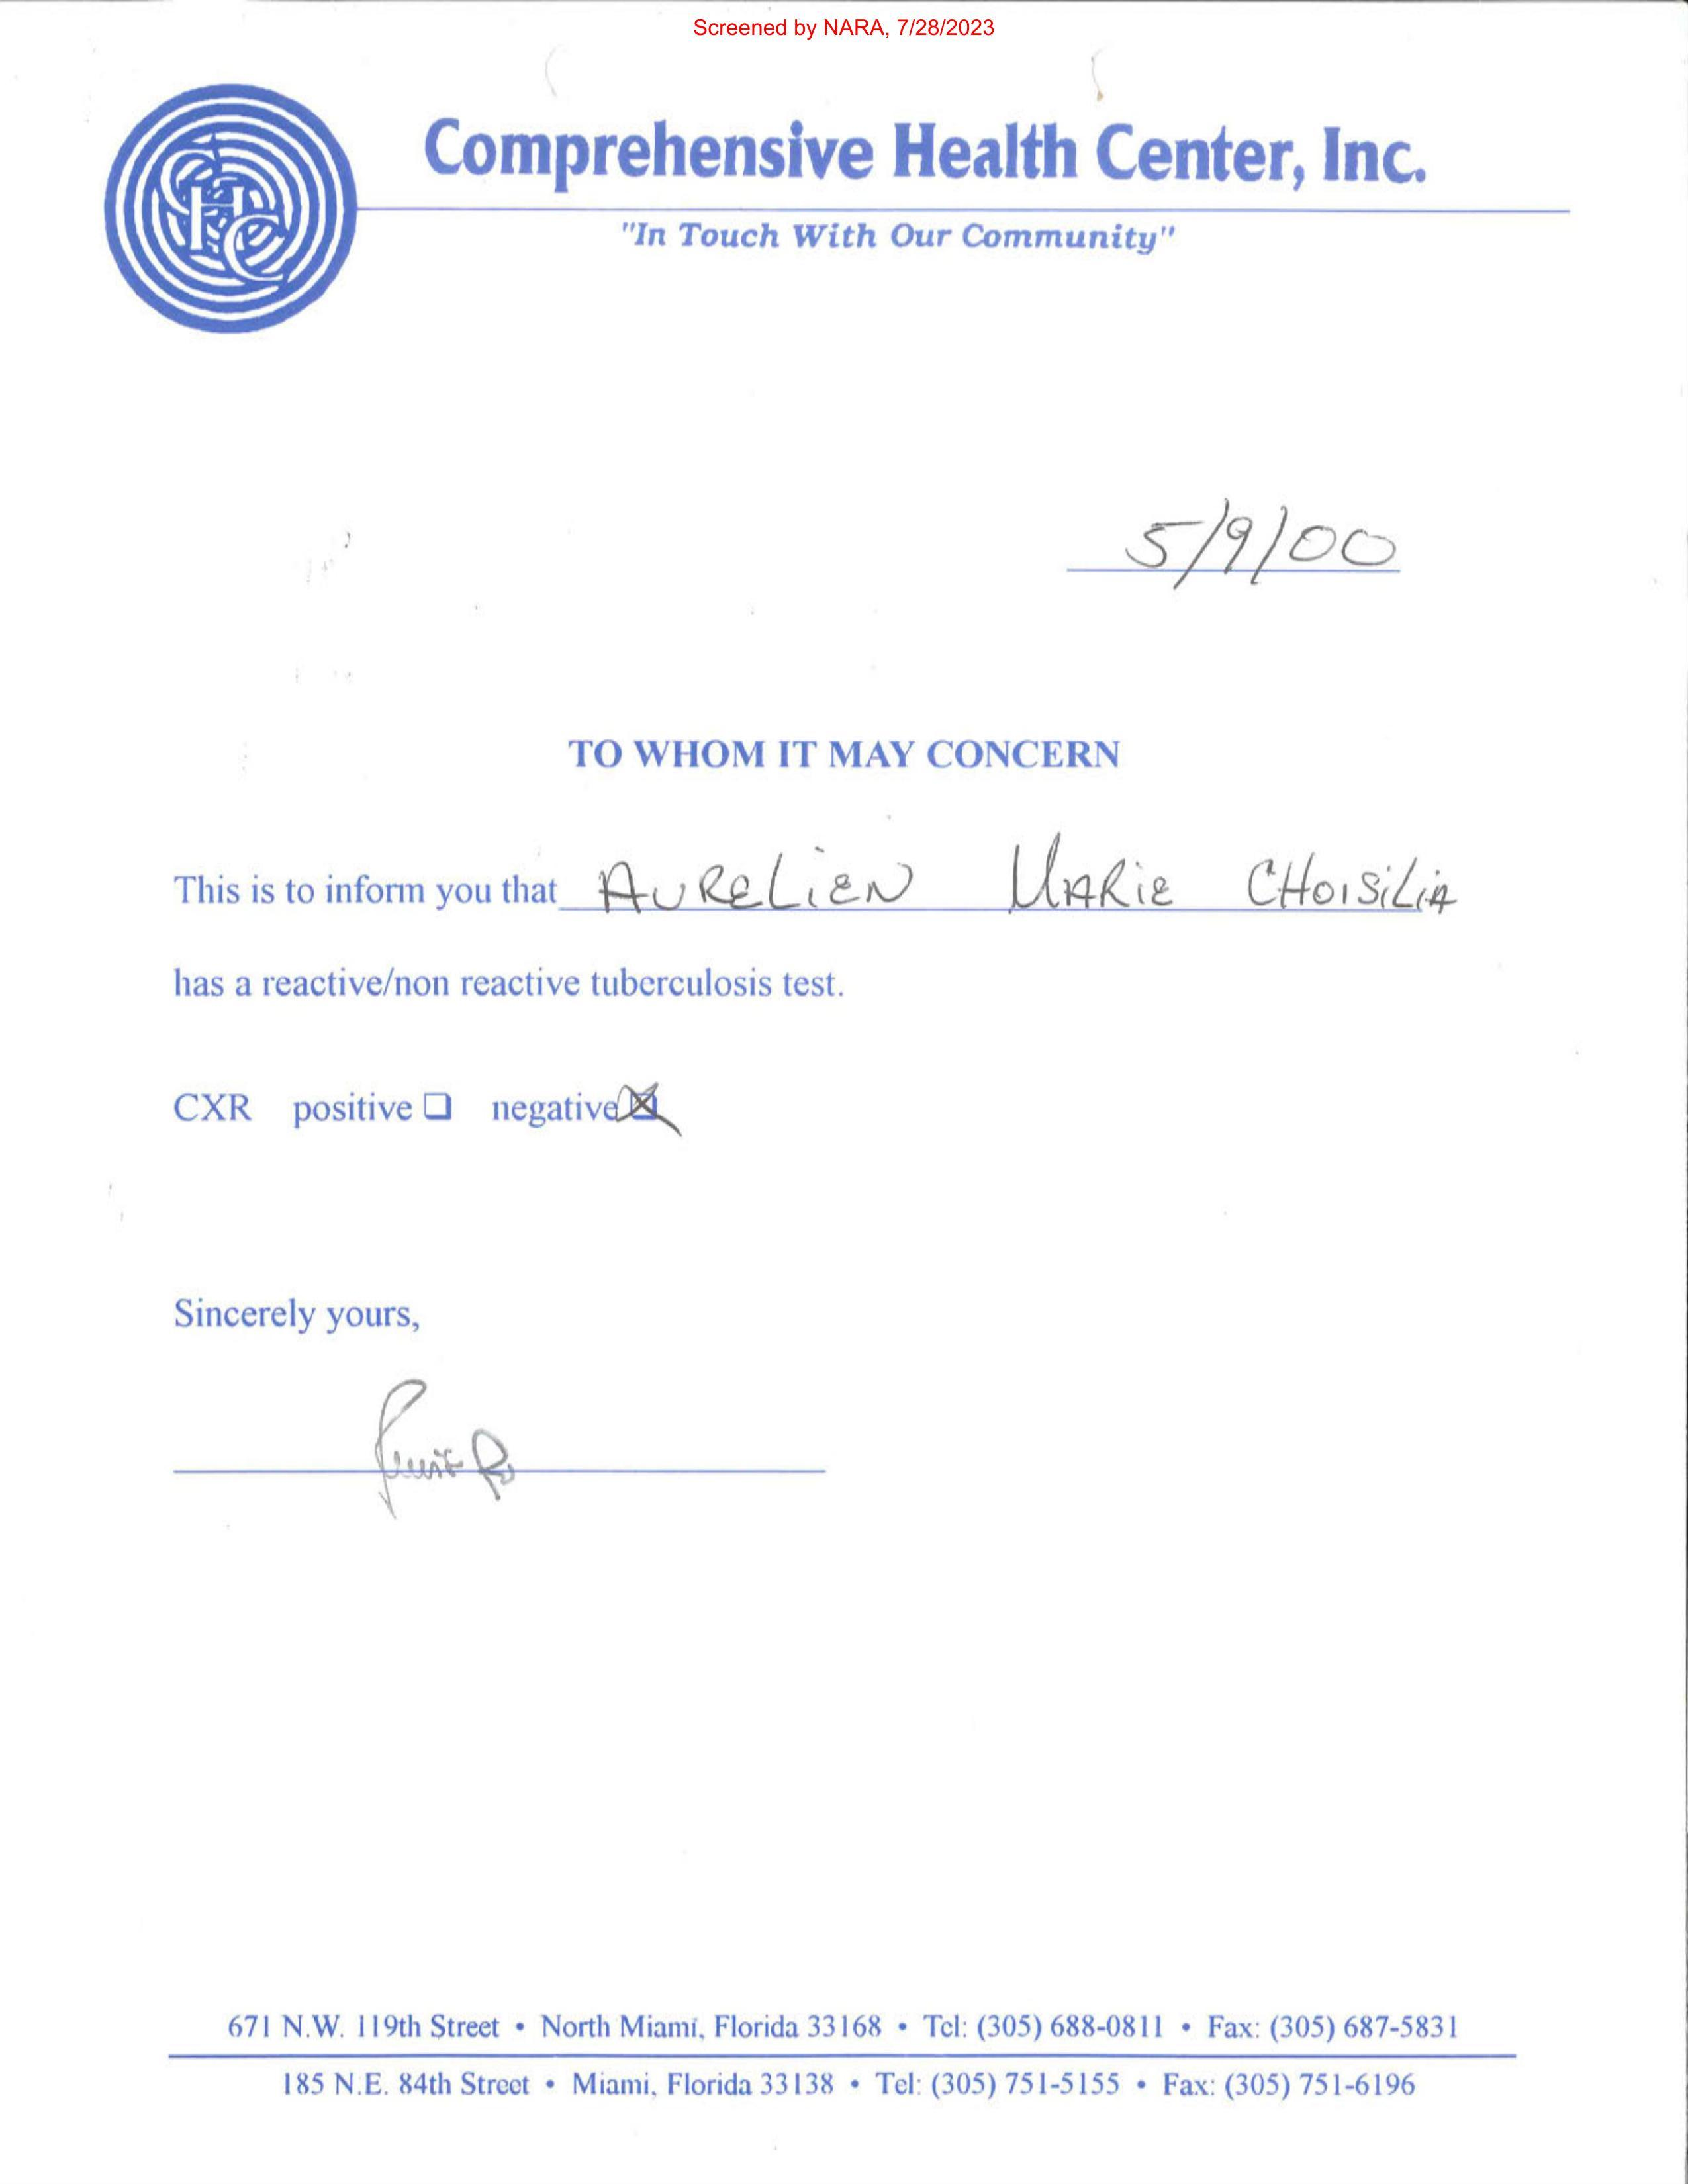 Screened by NARA, 7/28/2023
Comprehensive Health Center, Inc.
"In Touch With Our Community"
CHC
5/9/00
TO WHOM IT MAY CONCERN
This is to inform you that AURELIEN MARIE CHOISILIA
has a reactive/non reactive tuberculosis test.
CXR positive ☐ negative ☒
Sincerely yours,
671 N.W. 119th Street • North Miami, Florida 33168 • Tel: (305) 688-0811 • Fax: (305) 687-5831
185 N.E. 84th Street • Miami, Florida 33138 • Tel: (305) 751-5155 • Fax: (305) 751-6196